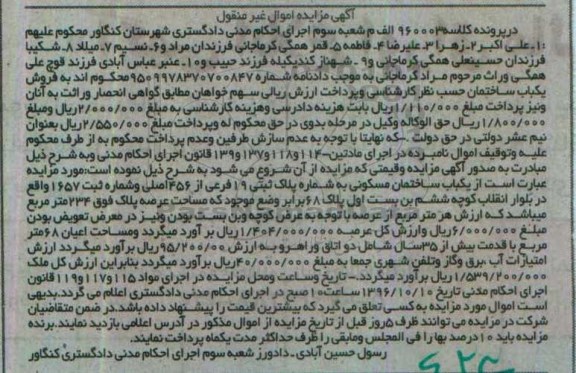 آگهی مزایده اموال غیر منقول
درپرونده کلاسه ۹۶۰۰۰۳ الف م شعبه سوم اجرای احکام مدنی دادگستری شهرستان کنگاور محکوم علیهم
۱:ـ علی اکبر ۲ـ زهرا ۳ـ علیرضا ۴ـ فاطمه ۵ـ قمر همگی کرماجانی فرزندان مراد و ۶ـ نسیم ۷ـ میلاد ۸ـ شکیبا
فرزندان حسینعلی همگی کرماجانی و ۹ـ شهناز کندیکیله فرزند حبیب و ۱۰ـ عنبر عباس آبادی فرزند قوچ علی
همگی وراث مرحوم مراد کرماجانی به موجب دادنامه شماره ۹۵۰۹۹۷۸۳۷۰۷۰۰۸۴۷ محکوم اند به فروش
یکباب ساختمان حسب نظر کارشناسی وپرداخت ارزش ریالی سهم خواهان مطابق گواهی انحصار وراثت به آنان
ونیز پرداخت مبلغ ۱/۱۱۰/۰۰۰ریال بابت هزینه دادرسی وهزینه کارشناسی به مبلغ ۲/۰۰۰/۰۰۰ریال ومبلغ
۱/۸۰۰/۰۰۰ ریال حق الوکاله وکیل در مرحله بدوی در حق محکوم له وپرداخت مبلغ ۲/۵۵۰/۰۰۰ریال بعنوان
نیم عشر دولتی در حق دولت .ـ که نهایتا با توجه به عدم سازش طرفین وعدم پرداخت محکوم به از طرف محکوم
علیه وتوقیف اموال نامبرده در اجرای مادتین ـ ۱۱۴و۱۱۸و۱۳۷و۱۳۹ قانون اجرای احکام مدنی وبه شرح ذیل
مبادرت به صدور آگهی مزایده وقیمتی که مزایده از آن شروع می شود به شرح ذیل نموده است:مورد مزایده
عبارت است از یکباب ساختمان مسکونی به شماره پلاک ثبتی ۱۹ فرعی از ۴۵۶اصلی وشماره ثبت ۱۶۵۷ واقع
در بلوار انقلاب کوچه ششم بن بست اول پلاک ۶۸ برابر وضع موجود که مساحت عرصه پلاک فوق ۲۳۴متر مربع
میباشد که ارزش هر متر مربع از عرصه با توجه به عرض کوچه وبن بست بودن ونیز در معرض تعویض بودن
مبلغ ۶/۰۰۰/۰۰۰ریال وارزش کل عرصه ۱/۴۰۴/۰۰۰/۰۰۰ریال بر آورد میگردد ومساحت اعیان ۶۸متر
مربع با قدمت بیش از ۳۵سال شامل دو اتاق وراهرو به ارزش ۹۵/۲۰۰/۰۰۰ریال برآورد میگردد ارزش
امتیازات آب ،برق وگاز وتلفن شهری جمعا به مبلغ ۴۰/۰۰۰/۰۰۰ریال برآورد میگردد بنابراین ارزش کل ملک
۱/۵۳۹/۲۰۰/۰۰۰ریال برآورد میگردد.ـ تاریخ وساعت ومحل مزایده در اجرای مواد ۱۱۵و۱۱۷و۱۱۹قانون
اجرای احکام مدنی ۱۳۹۶/۱۰/۱۰ساعت ۱۰صبح در اجرای احکام مدنی دادگستری اعلام می گردد.بدیهی
است اموال مورد مزایده به کسی تعلق می گیرد که بیشترین قیمت را پیشنهاد داده باشد.در ضمن متقاضیان
شرکت در مزایده می توانند ظرف ۵روز قبل از تاریخ مزایده از اموال مذکور در آدرس اعلامی بازدید نمایند.برنده
مزایده باید ۱۰درصد بها را فی المجلس ومابقی را ظرف حداکثر مدت یکماه پرداخت نمایند.
رسول حسین آبادی ـ دادورز شعبه سوم اجرای احکام مدنی دادگستری کنگاور